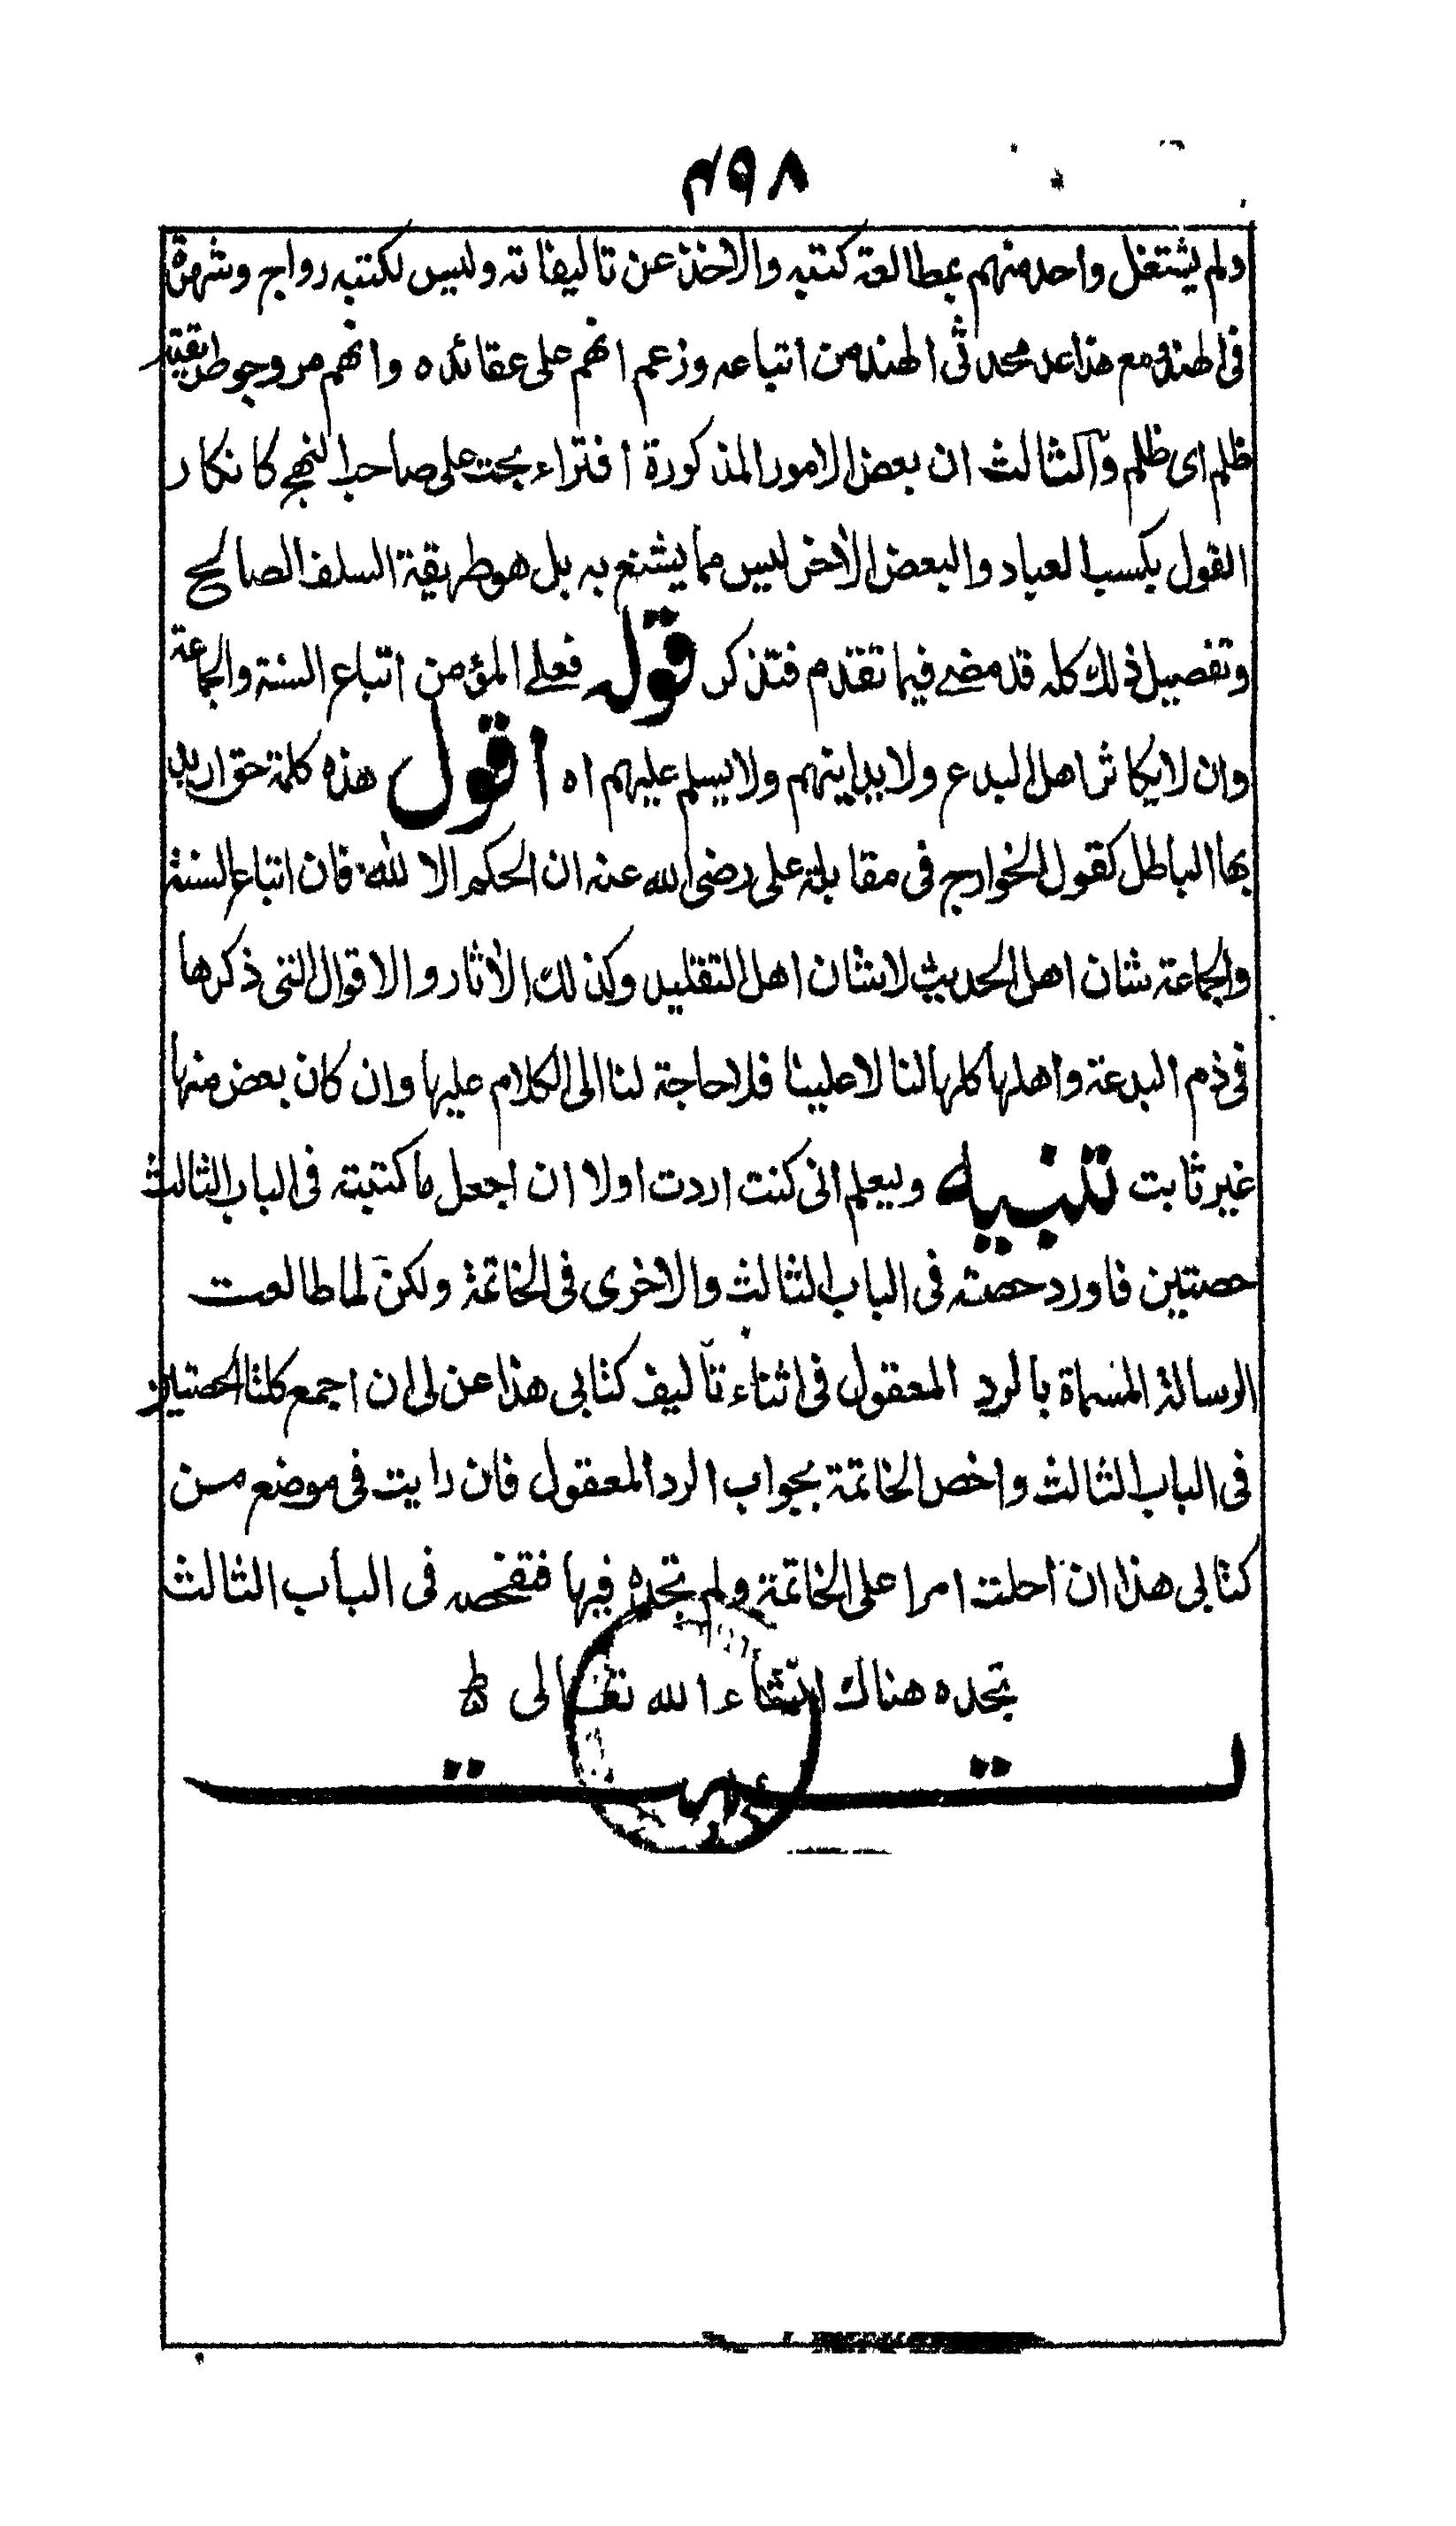 ٤٩٨
ولم يشتغل واحد منهم بمطالعة كتبه والاخذ عن تاليفاته وليس لكتبه رواج وشهرة
فى الهند ومع هذا عد محدثى الهند من اتباعه وزعم انهم على عقائده وانهم مروجو طريقته
ظلم اى ظلم والثالث ان بعض الامور المذكورة افتراء بحت على صاحب النهج كانكار
القول بكسب العباد والبعض الاخر ليس مما يشنع به بل هو طريقة السلف الصالح
وتفصيل ذلك كله قد مضے فيما تقدم فتذكر قوله فعلے المؤمن اتباع السنة والجماعة
وان لا يكاثر اهل البدع ولا يداينهم ولا يسلم عليهم اه اقول هذه كلمة حق اريد
بها الباطل كقول الخوارج فى مقابلة على رضى الله عنه ان الحكم الا لله فان اتباع السنة
والجماعة شان اهل الحديث لا شان اهل التقليد وكذلك الاثار والاقوال التى ذكرها
فى ذم البدعة واهلها كلها لنا لا علينا فلا حاجة لنا الى الكلام عليها وان كان بعض منها
غير ثابت تنبيه وليعلم انى كنت اردت اولا ان اجعل ما كتبته فى الباب الثالث
حصتين فاورد حصة فى الباب الثالث والاخرى فى الخاتمة ولكن لما طالعت
الرسالة المسماة بالرد المعقول فى اثناء تاليف كتابى هذا عن لى ان اجمع كلتا الحصتين
فى الباب الثالث واخص الخاتمة بجواب الرد المعقول فان رايت فى موضع من
كتابى هذا ان احلت امرا على الخاتمة ولم تجده فيها فتفحصه فى الباب الثالث
تجده هناك انشاء الله تعالى
تمت